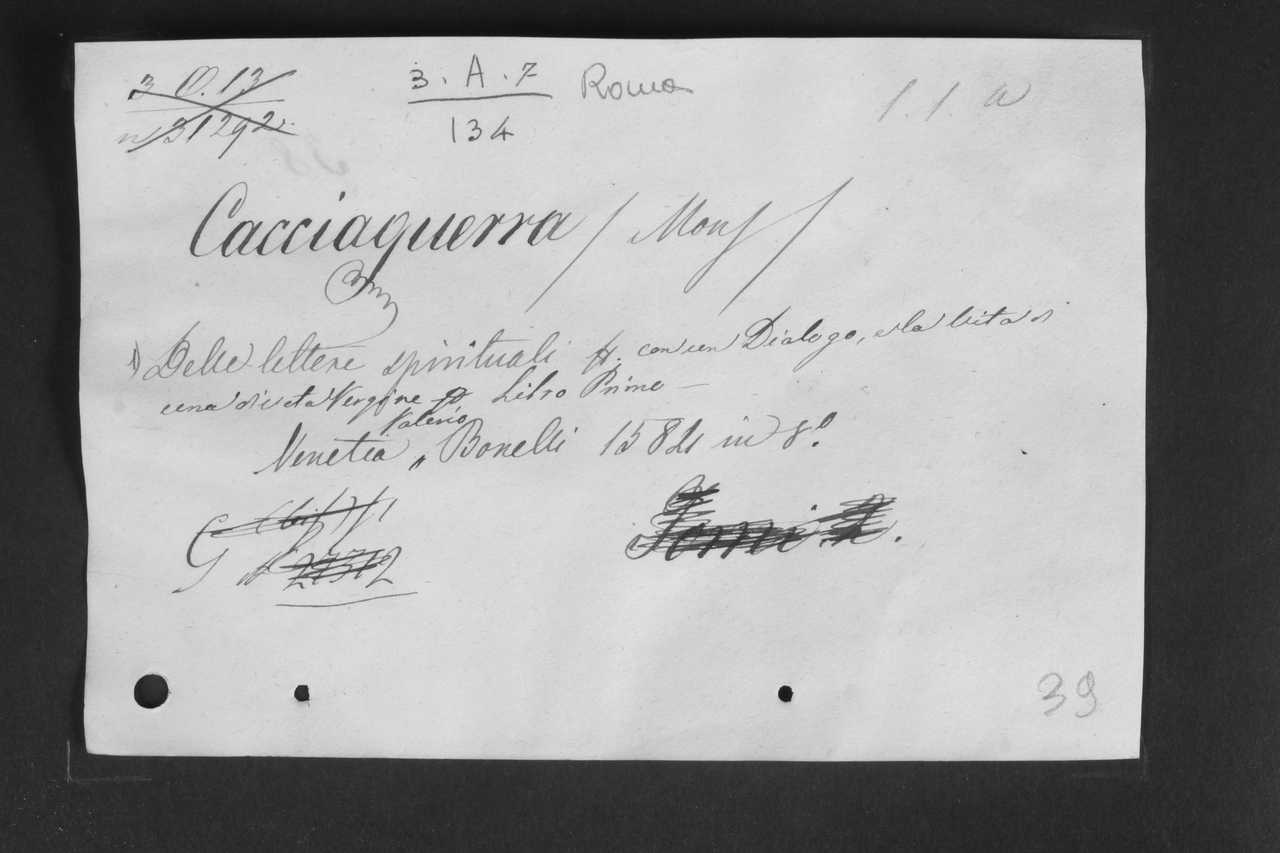 3 O. 13
n 31292.
3. A. 7
134
Roma
1. 1. a
Cacciaguerra / Mons /
1) Delle lettere spirituali con un Dialogo, e la vita di
una divota Vergine Libro Primo —
Valerio
Venetia, Bonelli 1584 in 8.º
G
Tomi 2.
39